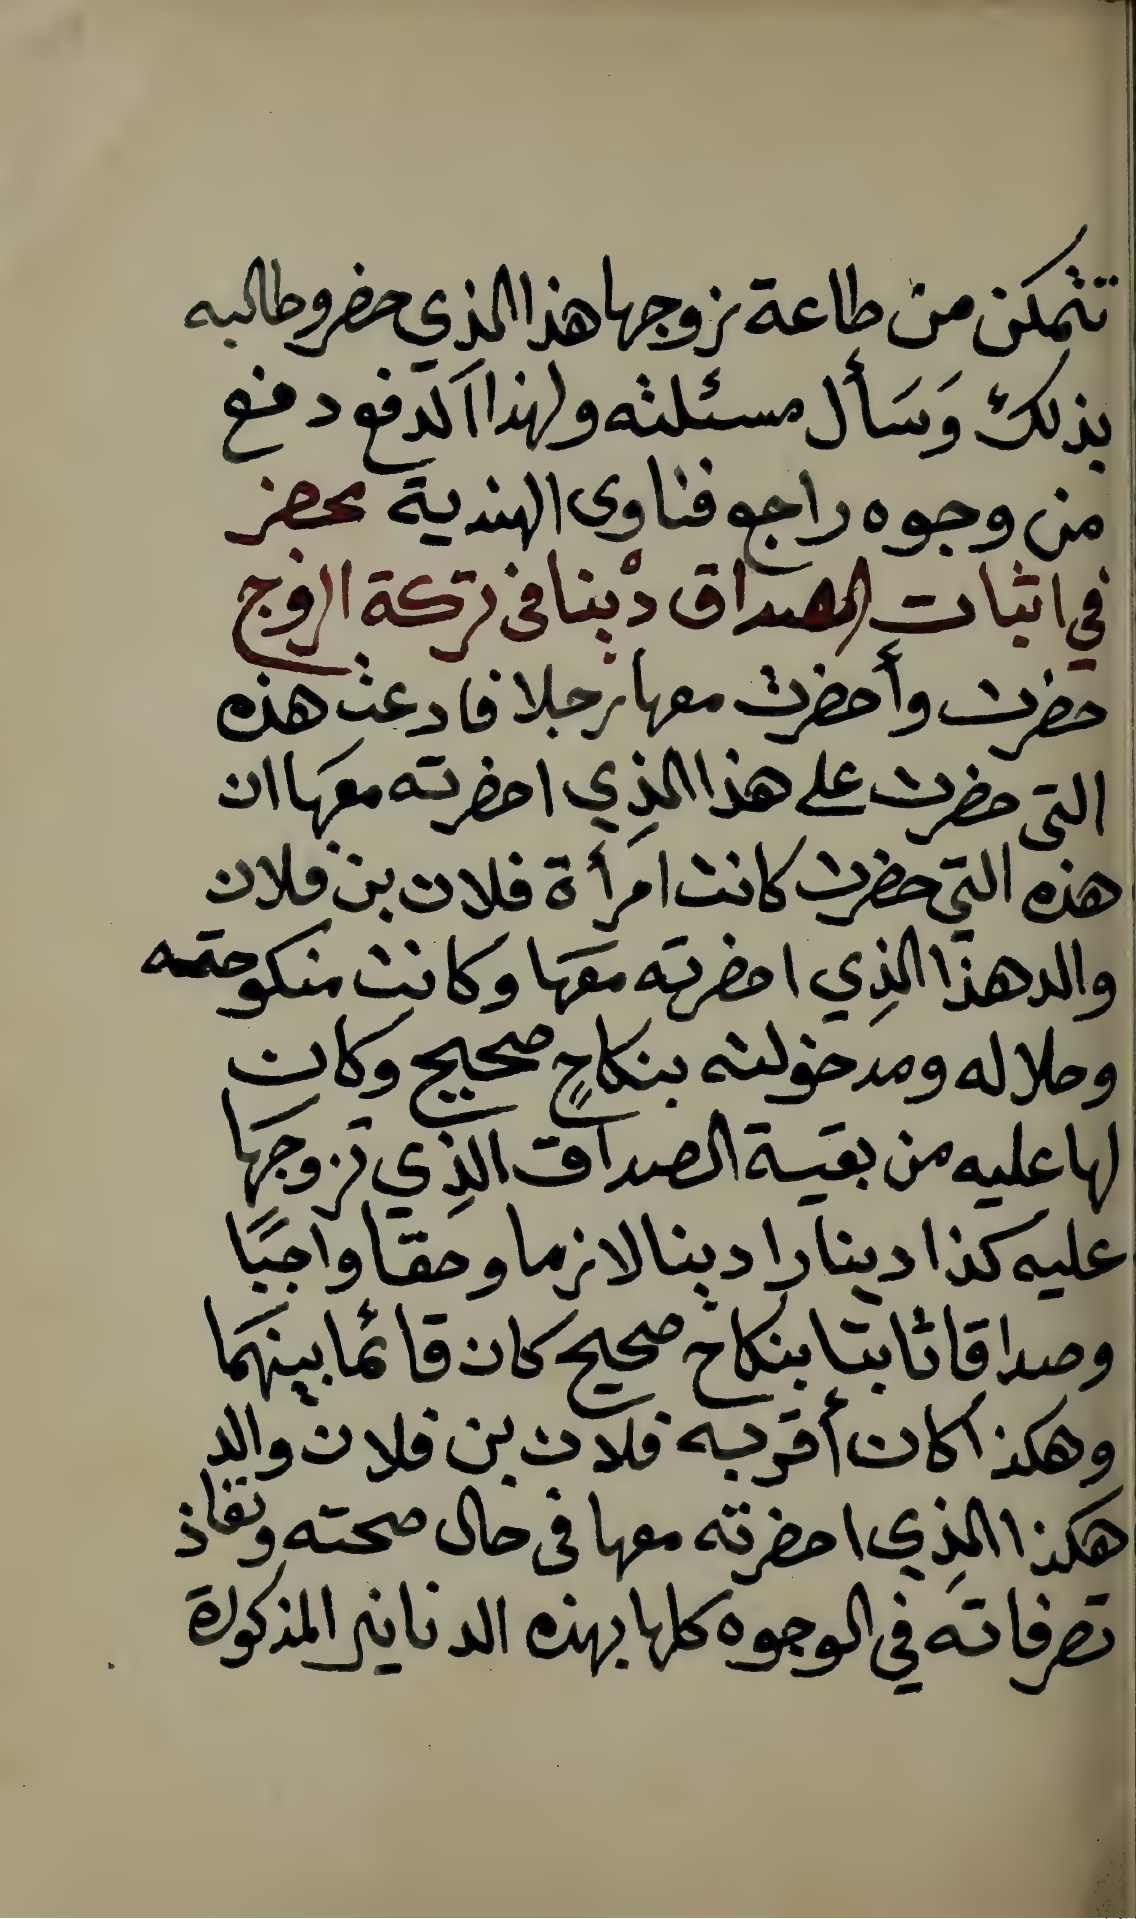 تتمكن من طاعة زوجها هذا الذي حضر وطالبه
بذلك وَسَأل مسئلته ولهذا الدفع دفع
من وجوه راجع فتاوى الهندية محضر
في اثبات الصداق دْينا في تركة الزوج
حضرت وأحضرت معها رجلا فادعت هذه
التي حضرت على هذا الذِي احضرته معَها ان
هذه التي حضرت كانت امرأة فلان بن فلان
والد هذا الذِي احضرته معَها وكانت منكوحته
وحلاله ومدخولته بنكاحٍ صحيح وكان
لها عليه من بقيَة الصداق الذِي تزوجهَا
عليه كذا دينارا دينا لازما وحقا واجبًا
وصداقا ثابتا بنكاح صحيح كان قائما بينهمَا
وهكذا كان أقر به فلان بن فلان والد
هكذا الذِي احضرته معها في حال صحته ونفاذ
تصرفاته في الوجوه كلها بهذه الدنانير المذكورة